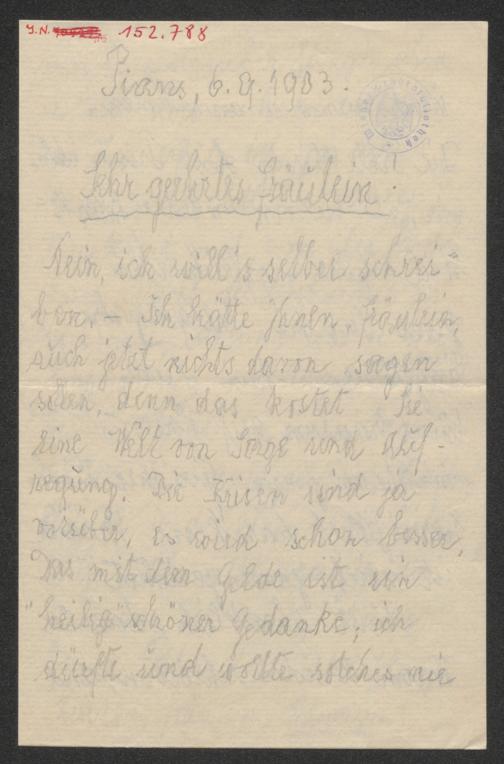 J.N. 152.788
Pians, 6. 9. 1903.
Sehr geehrtes Fräulein!
Nein, ich will's selber schrei-
ben. – Ich hätte ihnen, Fräulein,
auch jetzt nichts davon sagen
sollen, denn das kostet Sie
eine Welt von Sorge und Auf-
regung. Die Krisen sind ja
vorüber, es wird schon besser.
Das mit dem Gelde ist ein
"heilig" schöner Gedanke; ich
dürfte und wollte solches nie